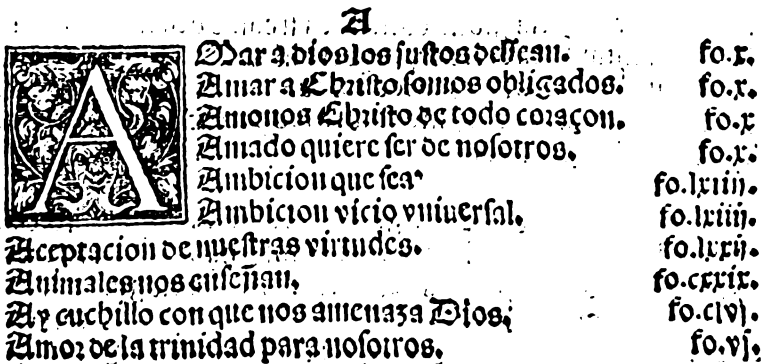 A
AMar a dios los justos dessean. fo.x.
Amar a Christo, somos obligados. fo.x.
Amonos Christo de todo coraçon. fo.x
Amado quiere ser de nosotros. fo.x.
Ambicion que sea fo.lxiiij.
Ambicion vicio vniuersal. fo.lxiiij.
Aceptacion de nuestras virtudes. fo.lxxij.
Animales nos enseñan. fo.cxxix.
Ay cuchillo con que nos amenaza Dios. fo.clvj.
Amor de la trinidad para nosotros. fo.vj.